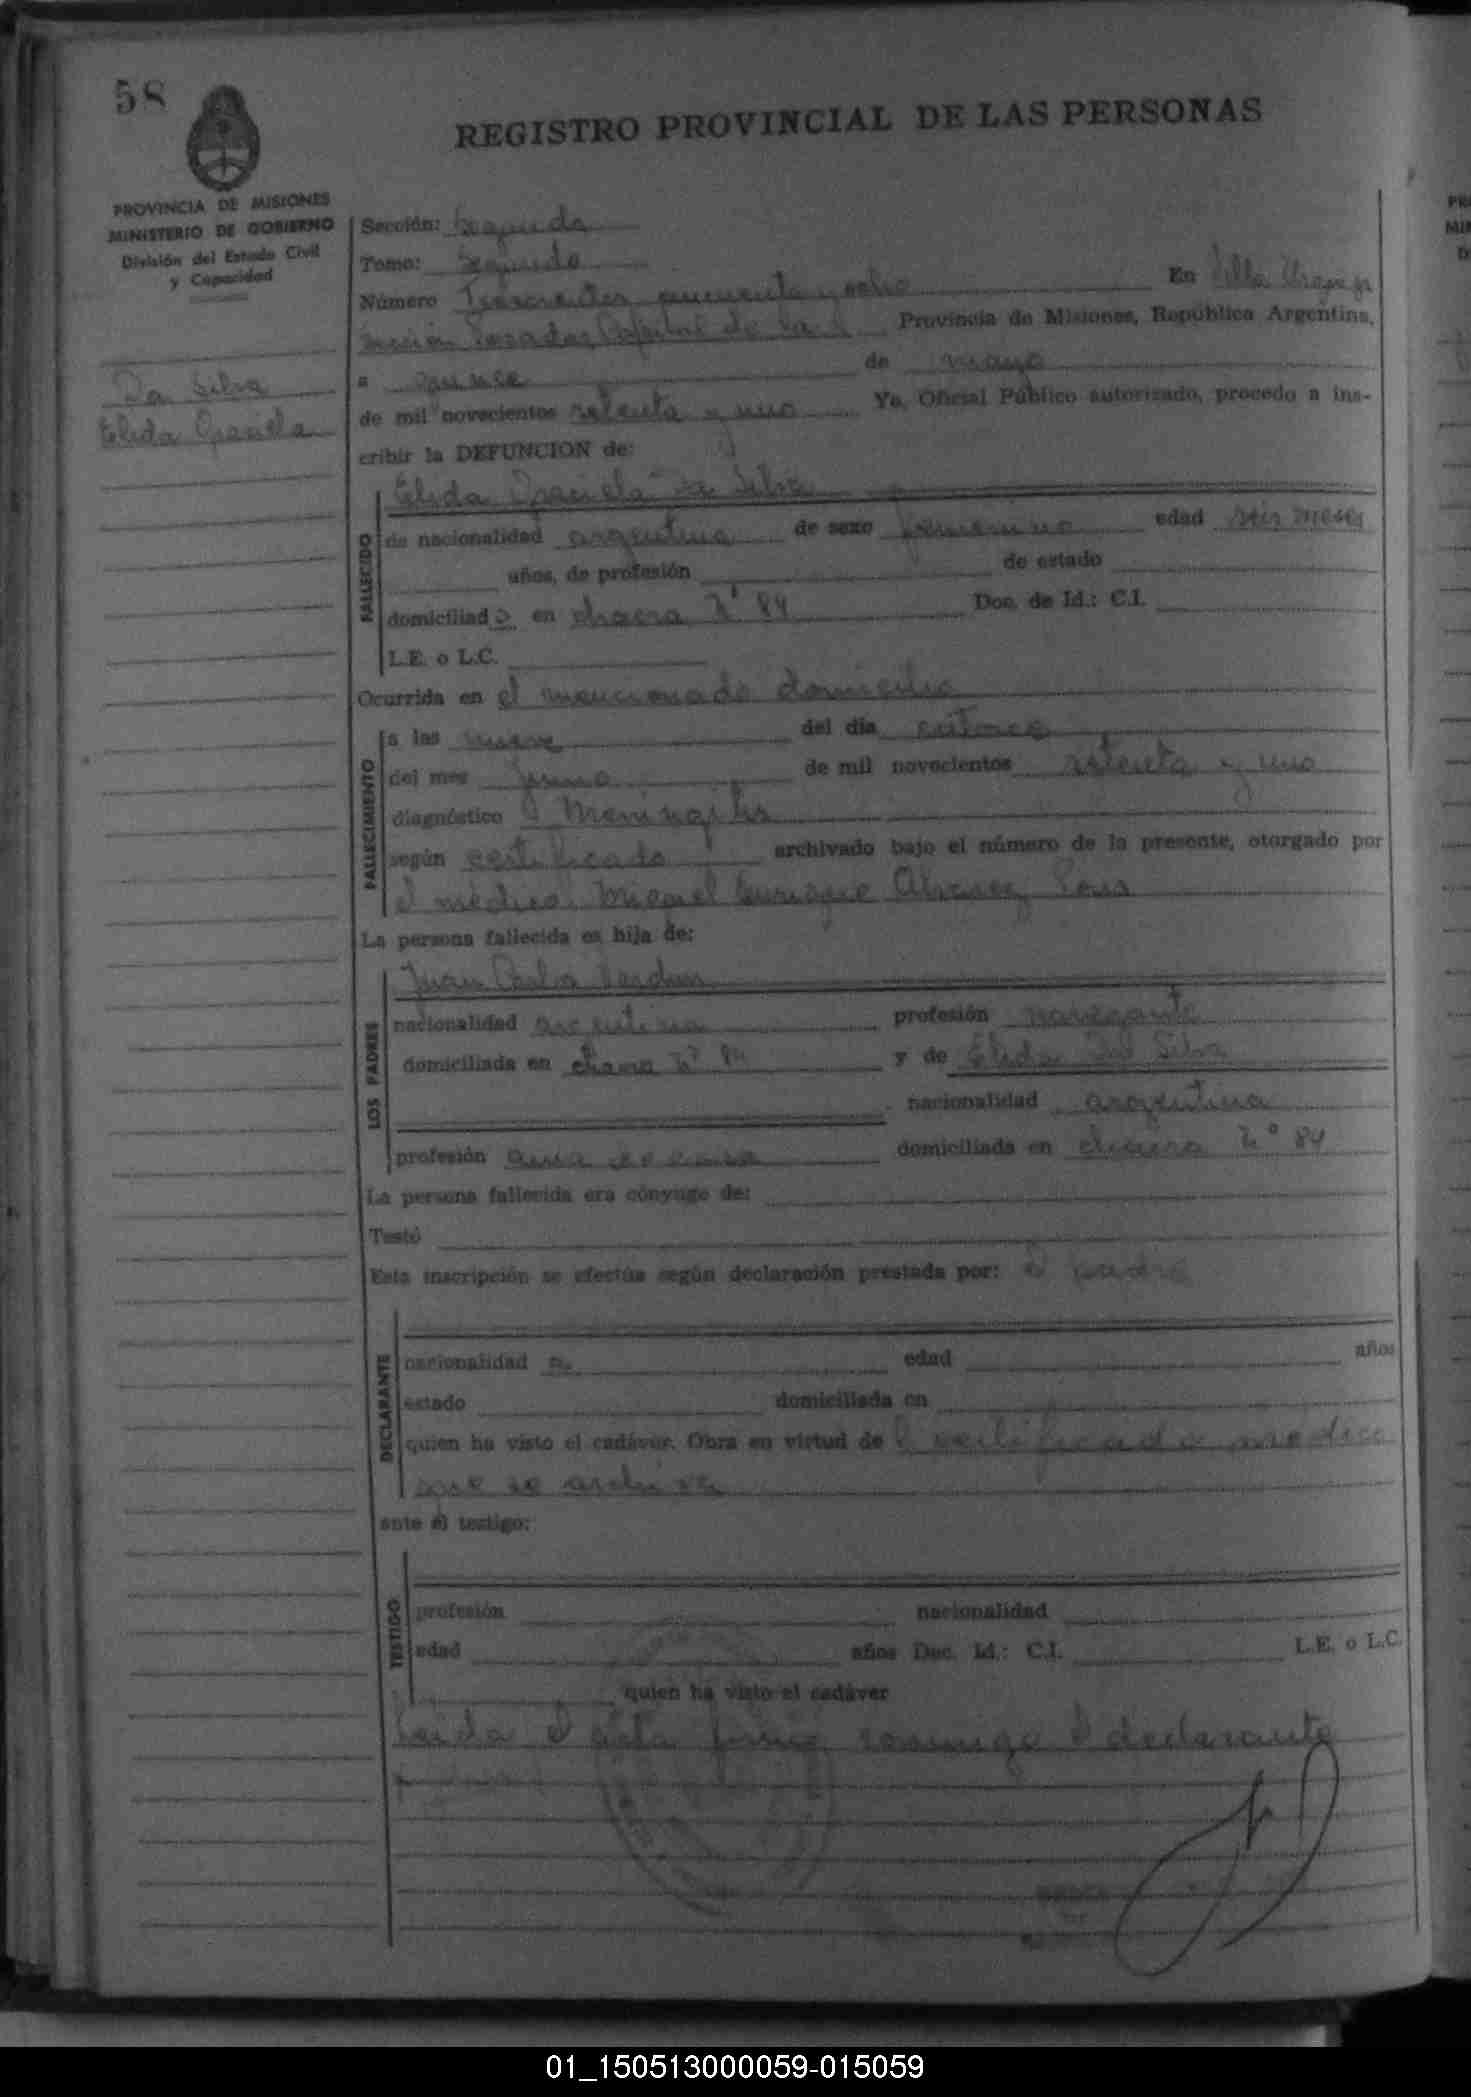 58
REGISTRO PROVINCIAL DE LAS PERSONAS
PROVINCIA DE MISIONES
MINISTERIO DE GOBIERNO
División del Estado Civil
y Capacidad
Da Silva
Elida Graciela
Sección: Segunda
Tomo: Segundo
Número Trescientos cincuenta y ocho En Villa Urquiza
sección Posadas Capital de la Provincia de Misiones, República Argentina,
a quince de mayo
de mil novecientos setenta y uno Yo, Oficial Público autorizado, procedo a ins-
cribir la DEFUNCION de:
Elida Graciela Da Silva
FALLECIDO
de nacionalidad argentina de sexo femenino edad seis meses
años, de profesión de estado
domiciliad a en chacra Nº 84 Doc. de Id.: C.I.
L.E. o L.C.
Ocurrida en el mencionado domicilio
FALLECIMIENTO
a las nueve del día catorce
del mes junio de mil novecientos setenta y uno
diagnóstico Meningitis
según certificado archivado bajo el número de la presente, otorgado por
el médico Miguel Enrique Alvarez
La persona fallecida es hija de:
LOS PADRES
Juan Carlos
nacionalidad argentina profesión navegante
domiciliada en chacra Nº 84 y de Elida Da Silva
nacionalidad argentina
profesión ama de casa domiciliada en chacra Nº 84
La persona fallecida era cónyuge de:
Testó
Esta inscripción se efectúa según declaración prestada por: el padre
DECLARANTE
nacionalidad edad años
estado domiciliada en
quien ha visto el cadáver. Obra en virtud de l certificado médico
que se archiva
ante el testigo:
TESTIGO
profesión nacionalidad
edad años Duc. Id.: C.I. L.E. o L.C.
quien ha visto el cadáver
Leida el acta firma conmigo el declarante
01_150513000059-015059